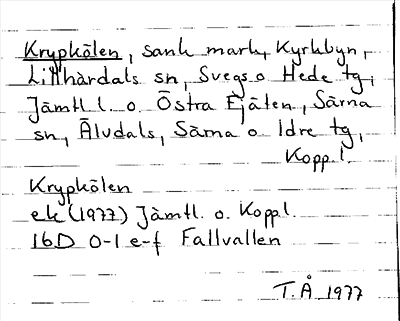 Krypkölen, sank mark, Kyrkbyn,
Lillhärdals sn, Svegs o Hede tg,
Jämtl l. o. Östra Fjäten, Särna
sn, Älvdals, Särna o Idre tg,
Kopp.l.
Krypkölen
ek (1977) Jämtl. o. Kopp l.
16D 0-1 e-f Fallvallen
T.Å 1977